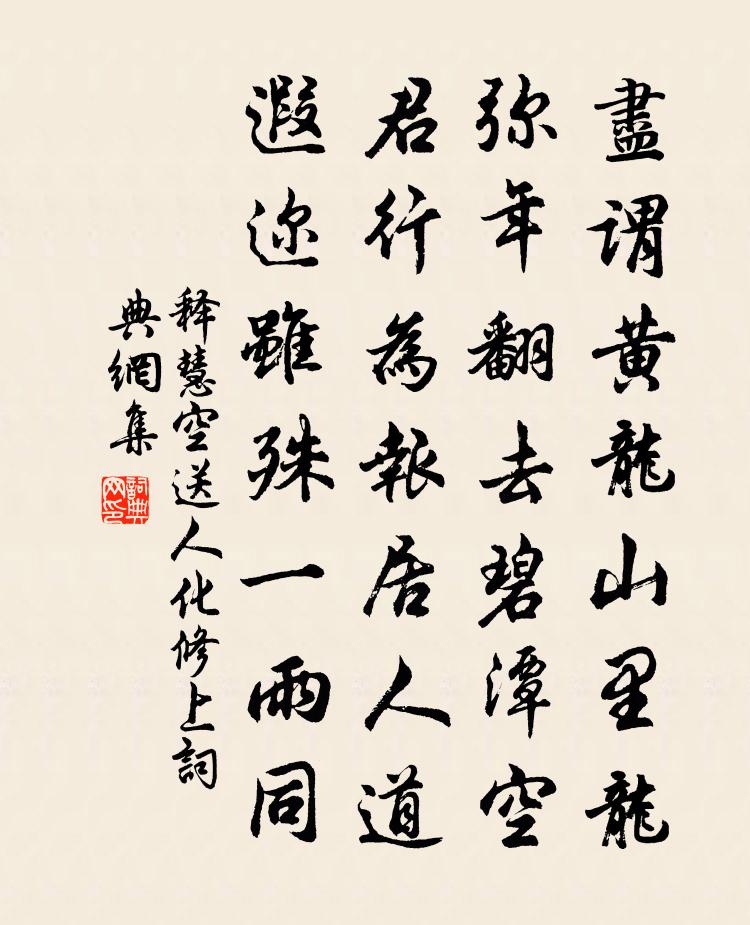 盡謂黃龍山里龍
弥年翻去碧潭空
君行為報居人道
遐迩雖殊一雨同
释慧空送人化修上詞
典網集
詞典
网印